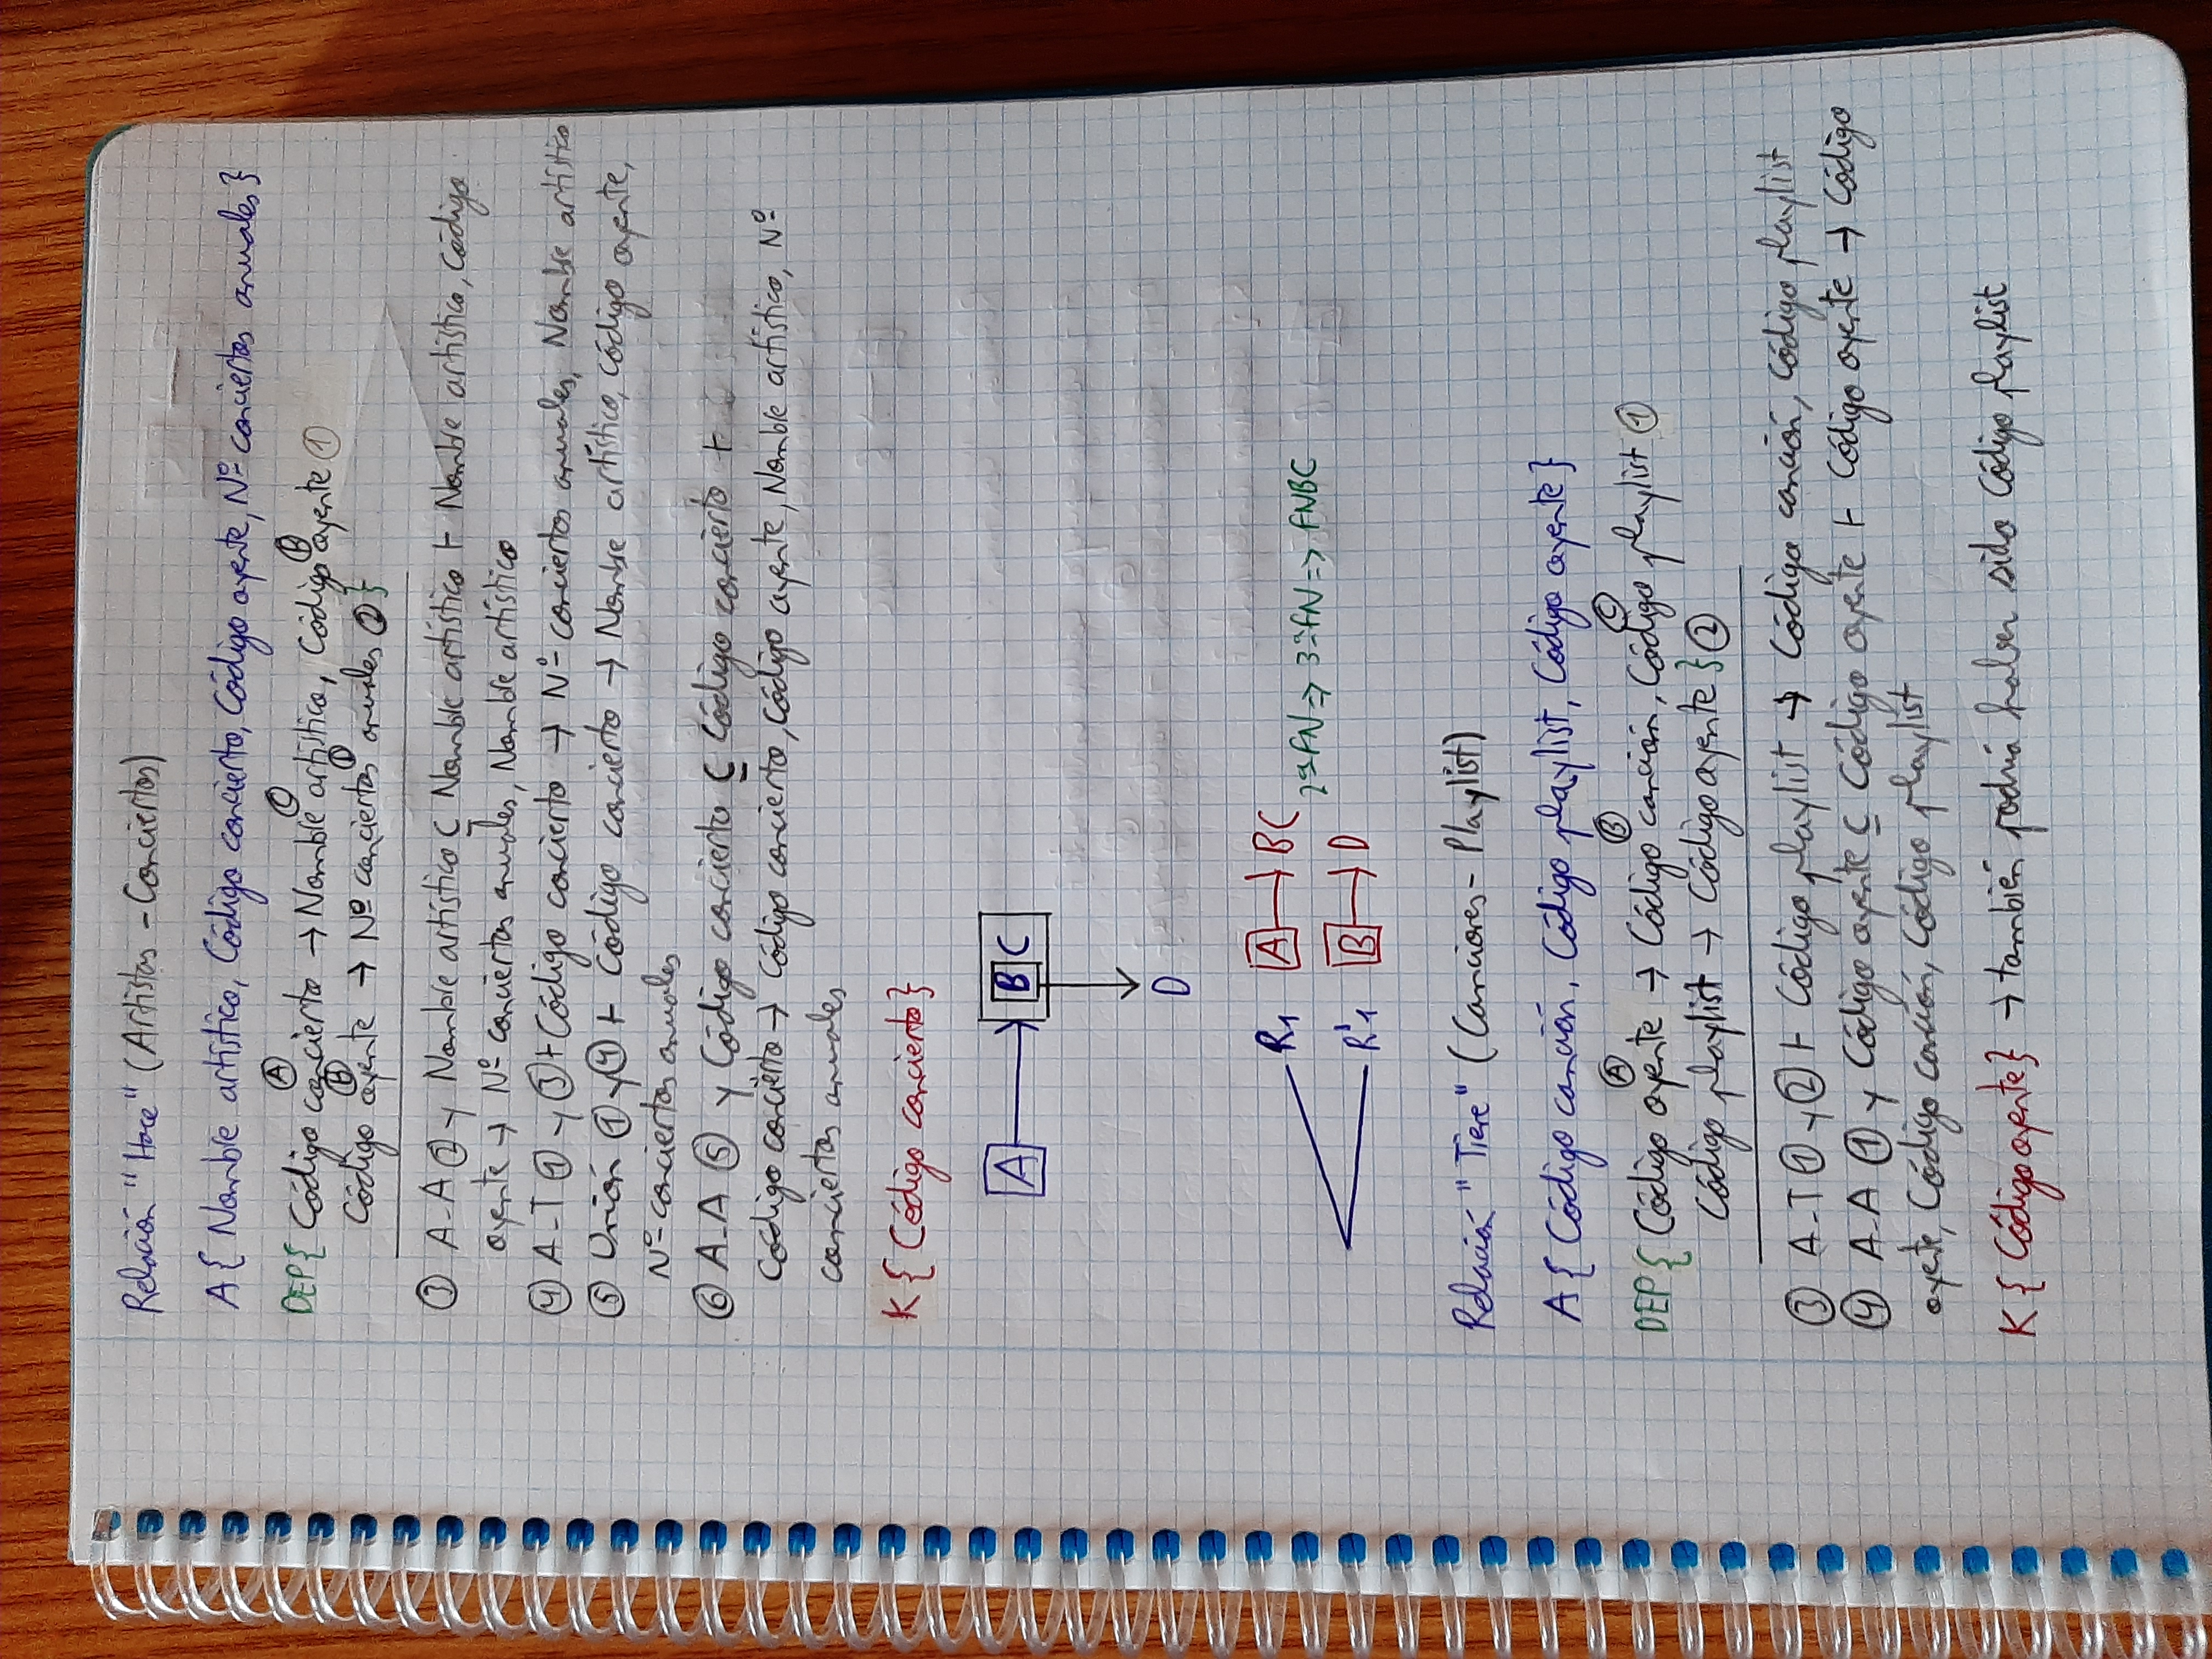 Relación "Hace" (Artistas - Conciertos)
A{ Nombre artístico, Código concierto, Código oyente, Nº conciertos anuales}
Ⓐ Ⓒ Ⓑ
DEP{ Código concierto → Nombre artístico, Código oyente ①
Ⓑ Ⓓ
Código oyente → Nº conciertos anuales ② }
③ A-A ② y Nombre artístico ⊆ Nombre artístico ⊢ Nombre artístico, Código
oyente → Nº conciertos anuales, Nombre artístico
④ A-T ① y ③ ⊢ Código concierto → Nº conciertos anuales, Nombre artístico
⑤ Unión ① y ④ ⊢ Código concierto → Nombre artístico, Código oyente,
Nº conciertos anuales
⑥ A-A ⑤ y Código concierto ⊆ Código concierto ⊢
Código concierto → Código concierto, Código oyente, Nombre artístico, Nº
conciertos anuales
K { Código concierto}
A → B C
D
R1 A → BC
2ªFN => 3ªFN => FNBC
R'1 B → D
Relación "Tiene" (Canciones - Playlist)
A { Código canción, Código playlist, Código oyente}
Ⓐ Ⓑ Ⓒ
DEP{ Código oyente → Código canción, Código playlist ①
Código playlist → Código oyente } ②
③ A-T ① y ② ⊢ Código playlist → Código canción, Código playlist
④ A-A ① y Código oyente ⊆ Código oyente ⊢ Código oyente → Código
oyente, Código canción, Código playlist
K { Código oyente} → también podría haber sido Código playlist